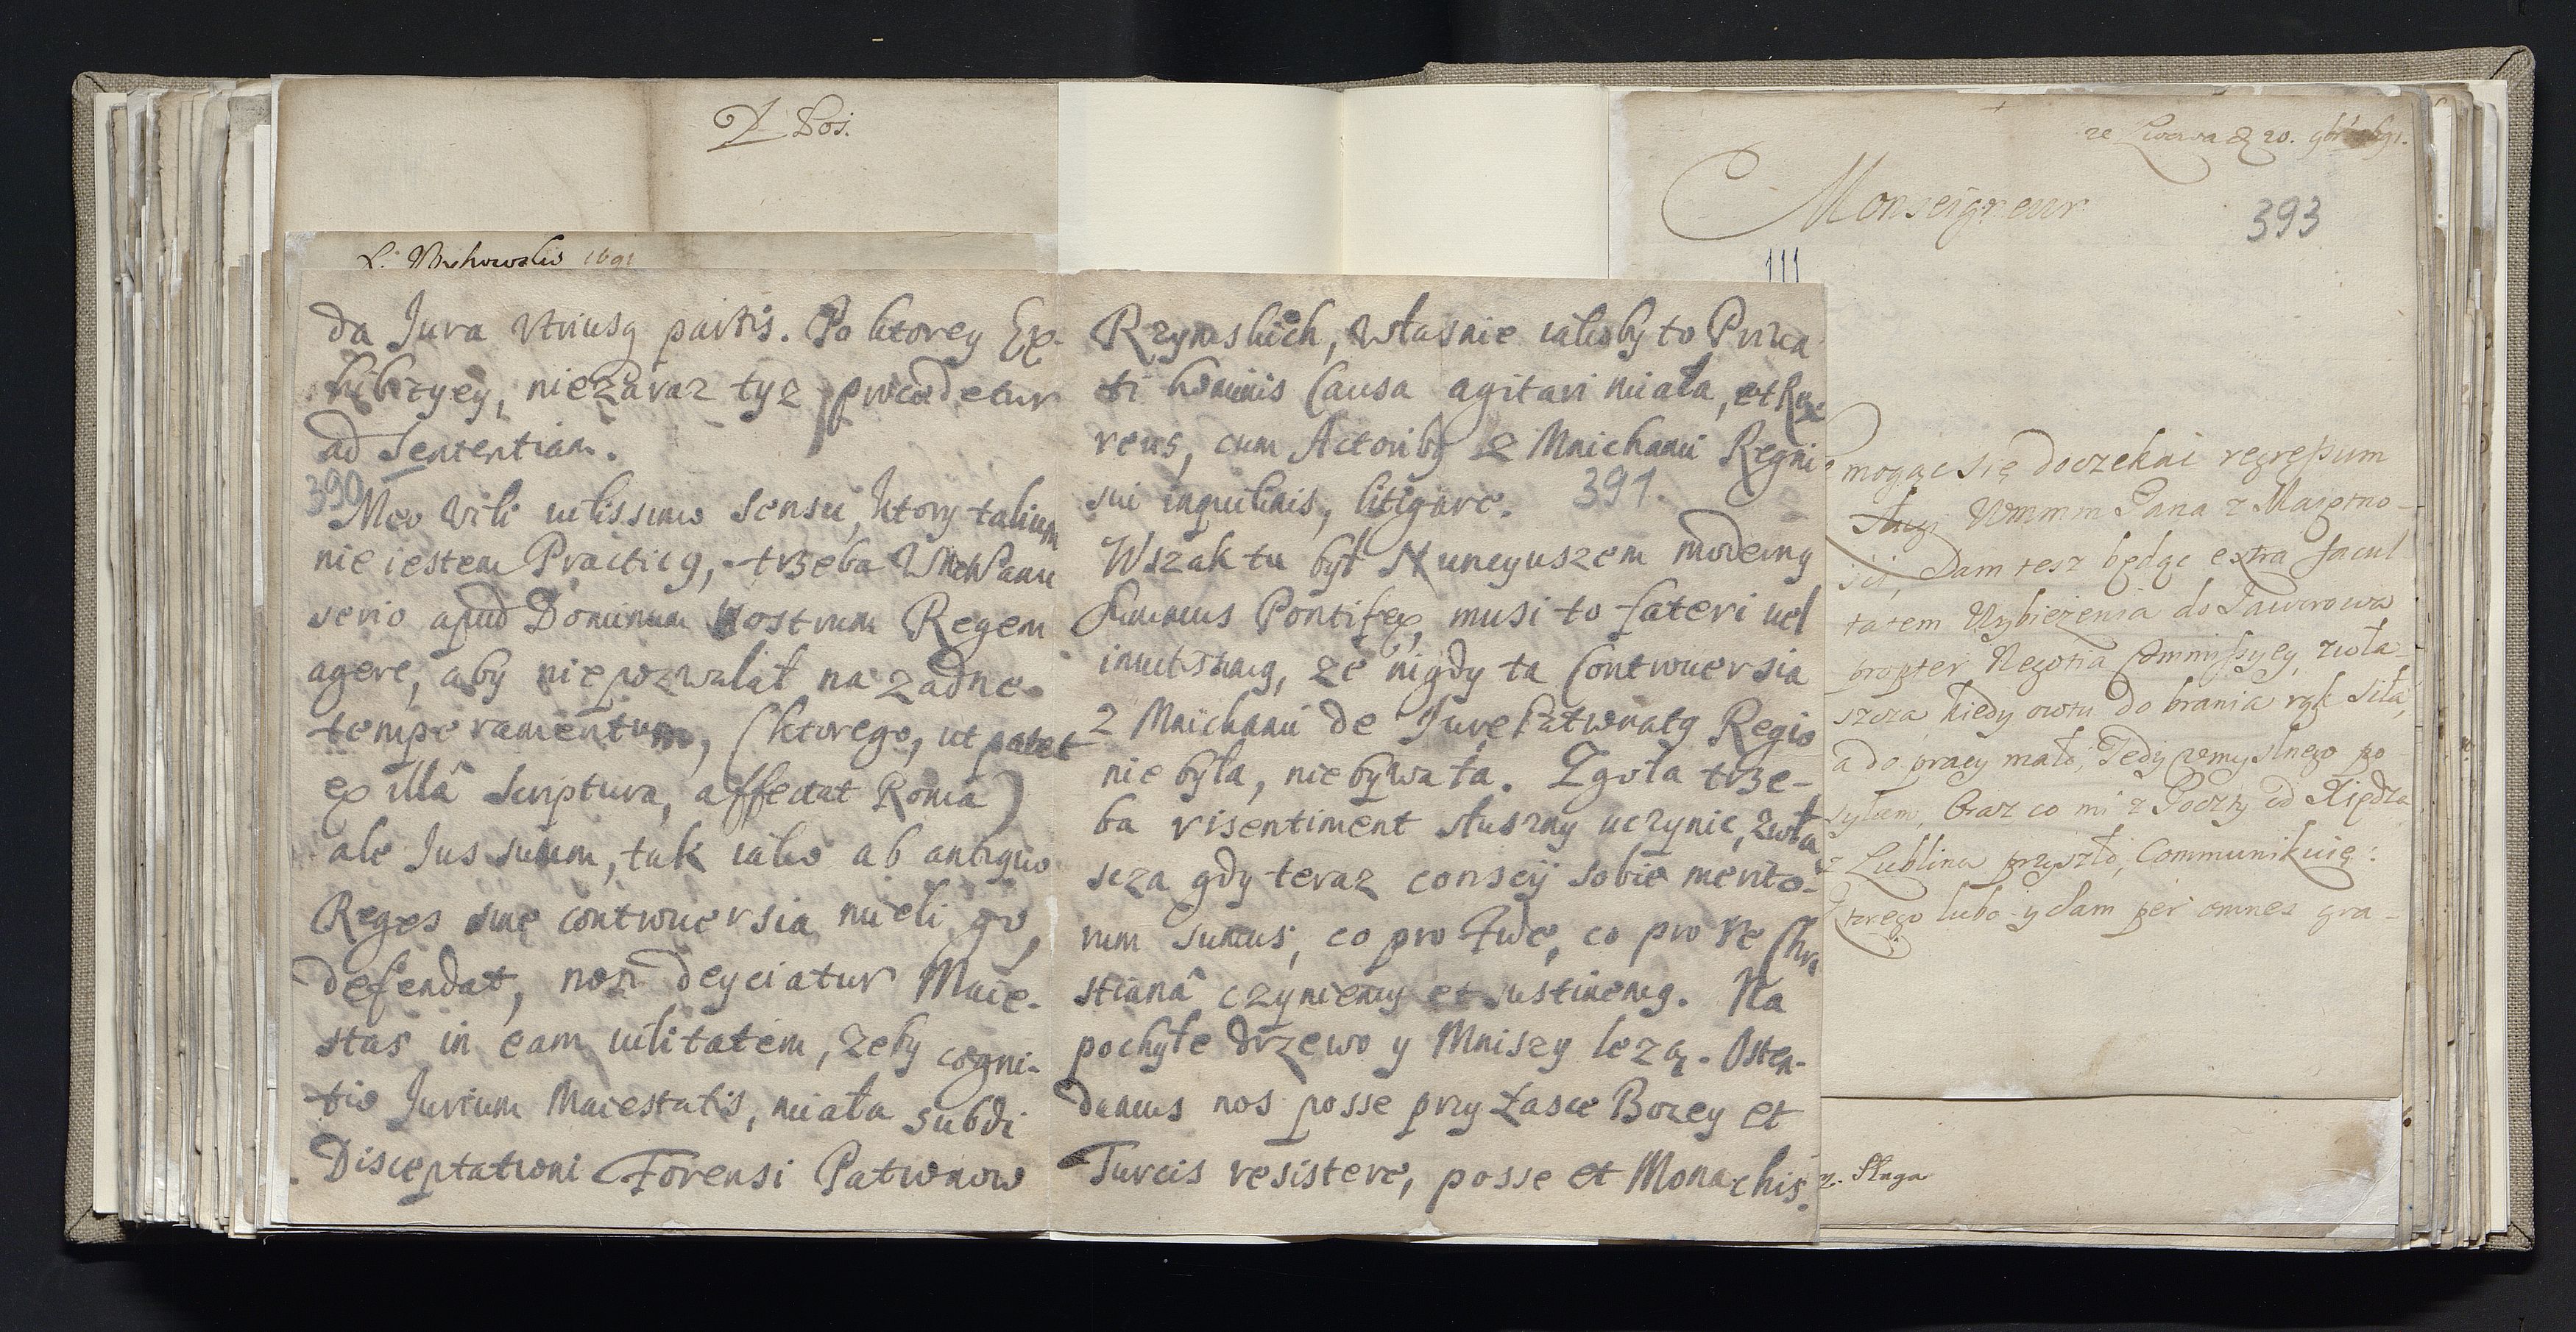 L. Morhowskis 1691
da Jura Vtriusq partis. Po ktorey Ex-
hibicyey, niezaraz tysz procedetur
ad Sententiam.
390
Meo Vili uilissimo sensu, ktory talium
nie iestem Practicq, trzeba WMMPanu
serio apud Dominum Nostrum Regem
agere, aby niepozwalał na zadne
temperamentum, (ktorego, ut patet
ex illâ Scriptura, affectat Roma)
ale Jus suum, tak iako ab antiquo
Reges sine controuersia mieli go,
defendat, non deyciatur Maie-
stas in eam uilitatem, zeby cogni-
tio Jurium Maiestatis, miała subdi
Disceptationi Forensi Patronow
Rzymskich, własnie iakoby to Priua
ti hominis Causa agitari miała, et Rex
reus, cum Actoribq z Mnichami Regni
sui inquilinis, litigare.
391.
Wszak tu był Nuncyuszem moderny
Summus Pontifex, musi to fateri uel
inuitissimq, ze nigdy ta Controuersia
z Mnichami de Jure Patronatq Regio
nie była, nie bywała. Zgoła trze-
ba risentiment słuszny uczynic, zwła
scza gdy teraz conscij sobie merito-
rum sumus, co pro Fide, co pro re Chri
stianâ czyniemy et sustinemq. Na
pochyłe drzewo y Mniszy lezą. Osten-
damus nos posse przy Łasce Bozey et
Turcis resistere, posse et Monachis.
ze Lwowa d 20. 9bris 1691.
Monseigneur
393
III
mogąc się doczekać regressum
Sługi Wmmm Pana z Maięto-
ści, Sam tesz będąc extra facul
tatem Wybieżenia do Jaworowa
propter Negotia Commissyey, zwła-
szcza kiedy owtu do brania rąk siła,
a do pracy mało; Tedy vmyslnego po
syłam, Oraz co mi z Poczty od Xiędza
z Lublina przyszło, Communikuię:
ktorego lubo y sam per omnes gra-
Sługa